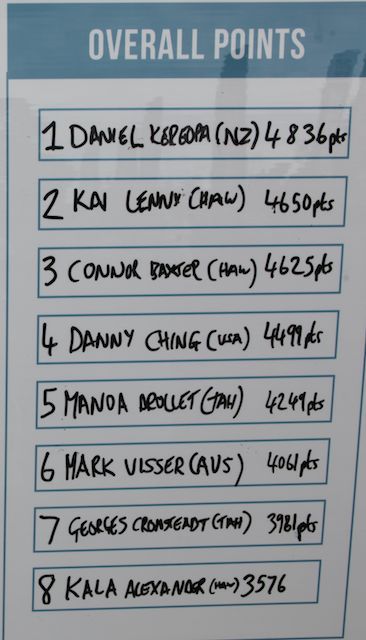 OVERALL POINTS
1 DANIEL KEREOPA (NZ) 4836pts
2 KAI LENNY (HAW) 4650pts
3 CONNOR BAXTER (HAW) 4625pts
4 DANNY CHING (USA) 4499pts
5 MANOA DROLLET (TAH) 4249pts
6 MARK VISSER (AUS) 4061pts
7 GEORGES CRONSTEADT (TAH) 3981pts
8 KALA ALEXANDER (HAW) 3576